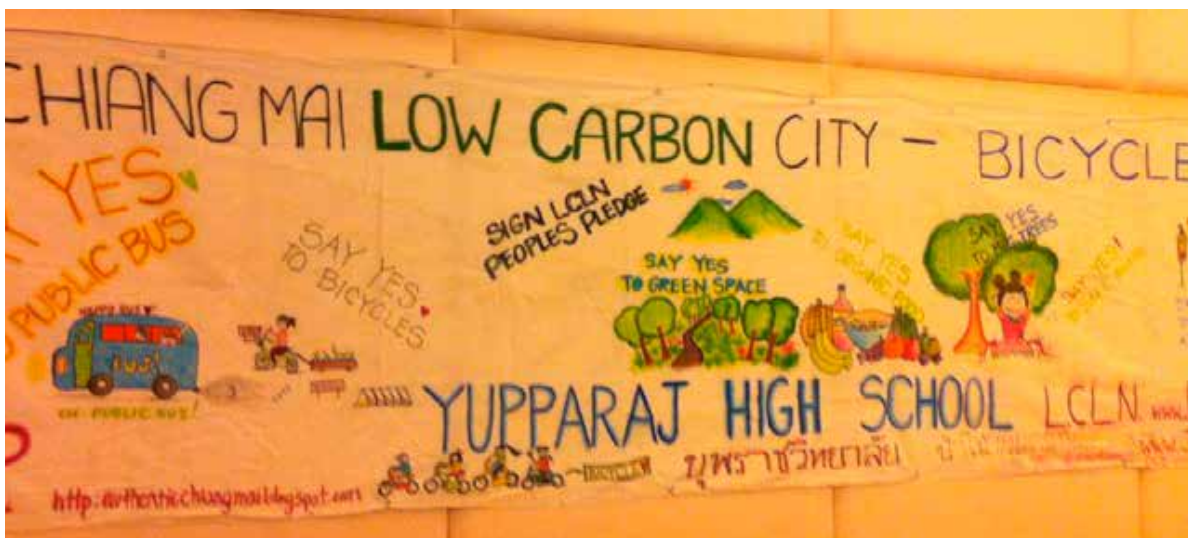 CHIANG MAI LOW CARBON CITY - BICYCLE
YES
PUBLIC BUS
SAY YES
TO BICYCLES
SIGN LCLN
PEOPLES PLEDGE
SAY YES
TO GREEN SPACE
SAY YES
TO ORGANIC
SAY YES
TO TREES
SAY YES!
HAPPY BUS
BUS!
OH PUBLIC BUS!
YUPPARAJ HIGH SCHOOL L.C.L.N. www.
BICYCLE
ยุพราชวิทยาลัย
http:authenticchiangmai.blogspot.com